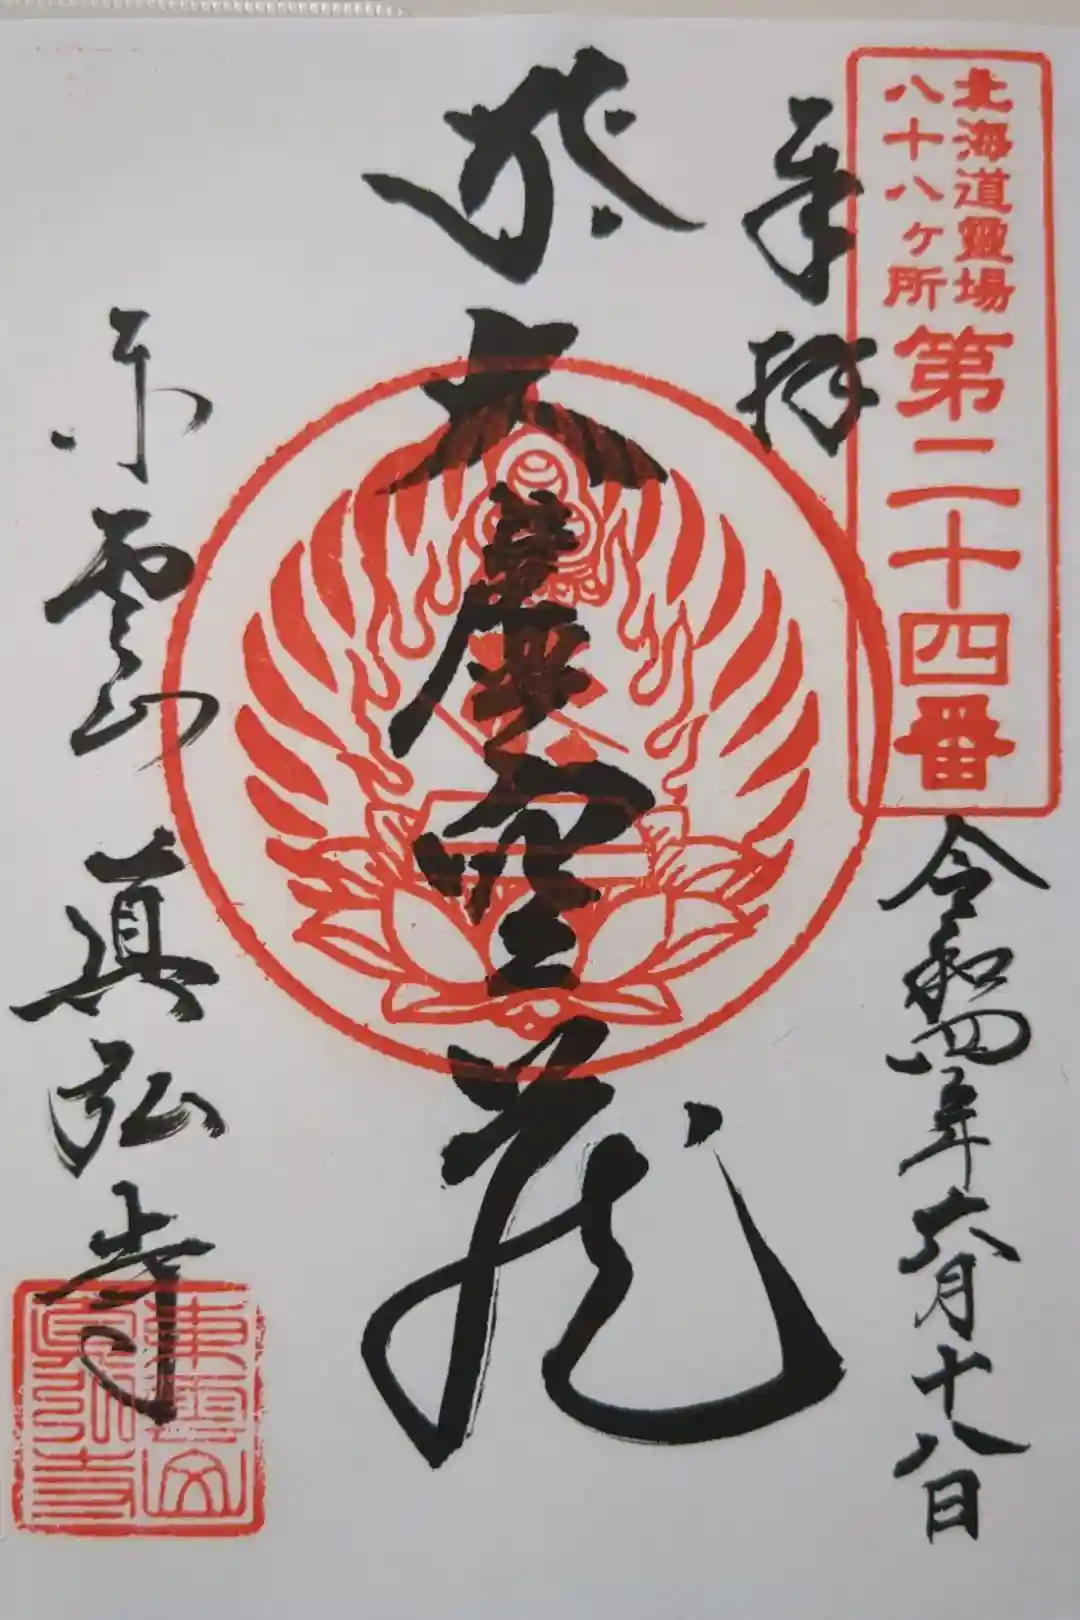 北海道靈場
八十八ヶ所
第二十四番
奉拝
令和四年六月十八日
於大虚空蔵
東雲山 眞弘寺
東雲山
眞弘寺